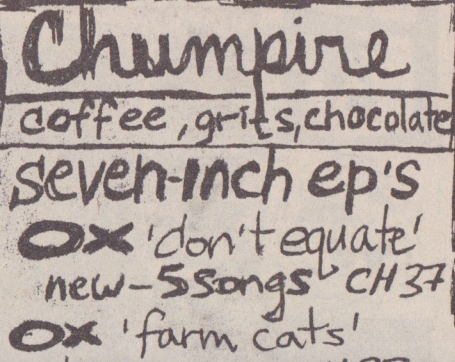 Chumpire
coffee, grits, chocolate
seven-inch ep's
OX 'don't equate'
new-5songs CH37
OX 'farm cats'